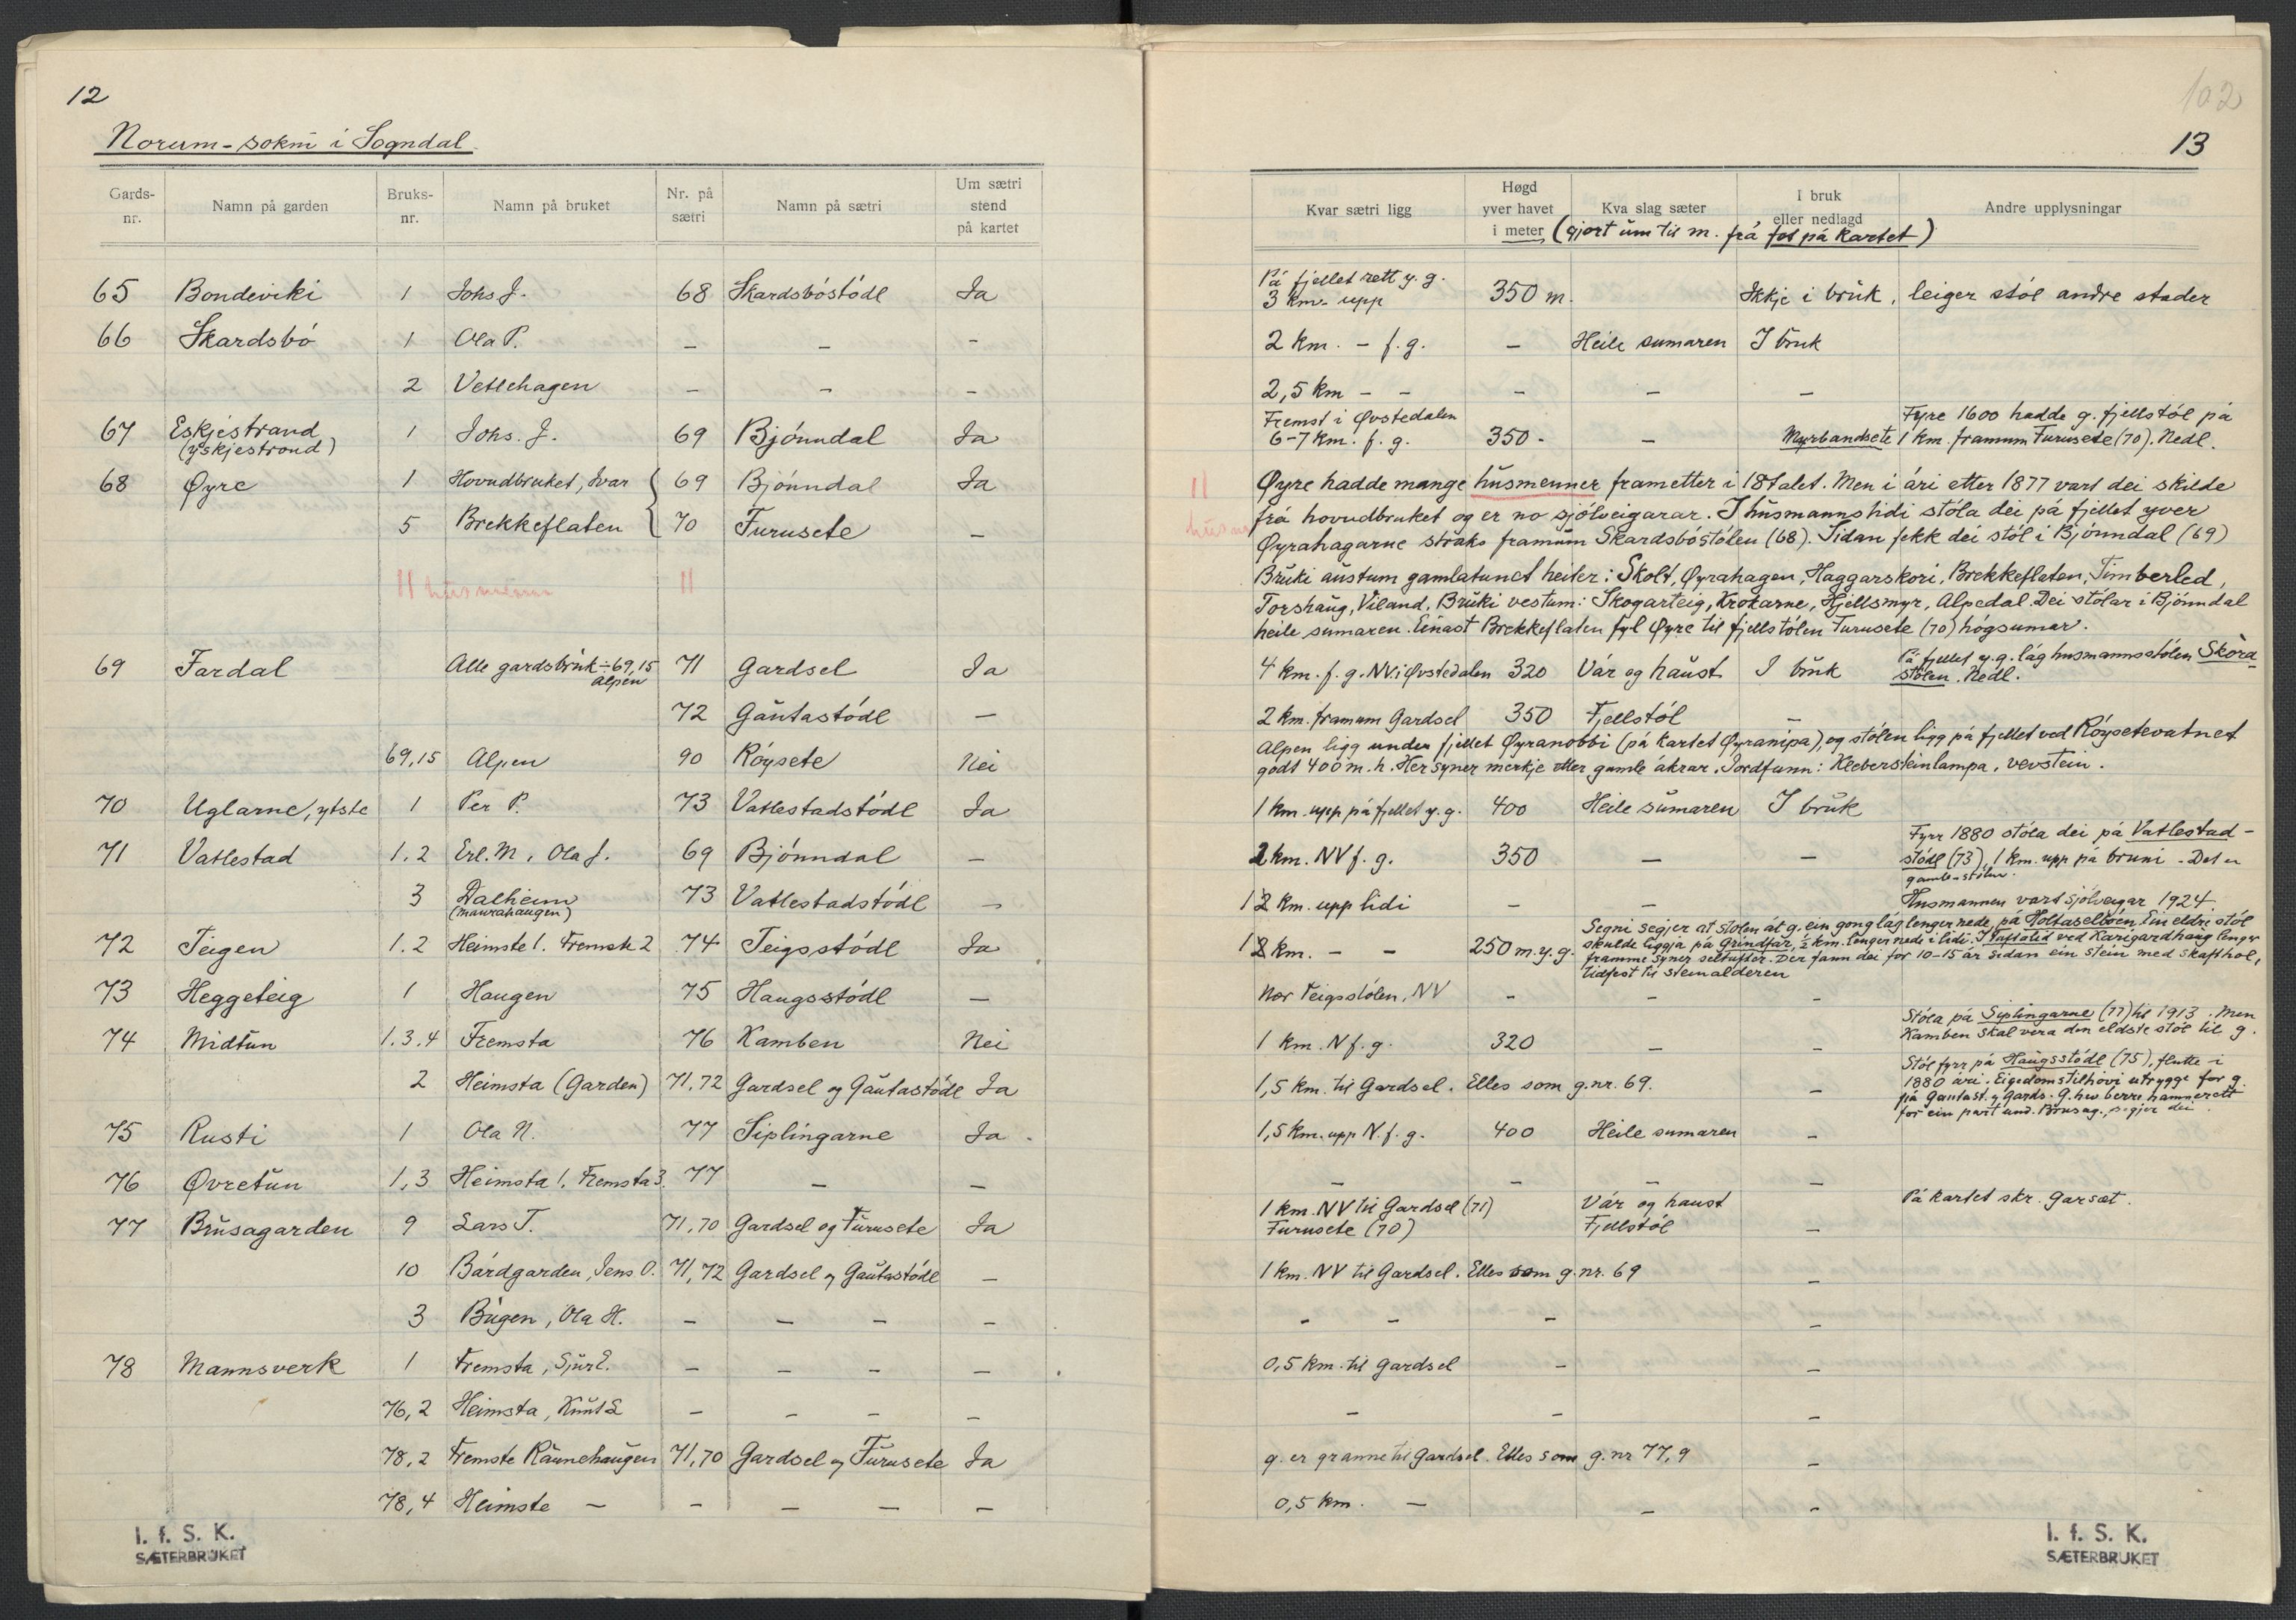 12
Norum-sokni i Sogndal
Gards-nr. Namn på garden Bruks-nr. Namn på bruket Nr. på sætri Namn på sætri Um sætri stend på kartet
65 Bondeviki 1 Johs J. 68 Skardsbóstódl Ja
66 Skardsbó 1 Ola P. – – –
2 Vetlehagen – – –
67 Eskjestrand (yskjestrond) 1 Johs. J. 69 Bjónndal Ja
68 Øyre 1 Hovudbruket, Ivar 69 Bjónndal Ja
5 Brekkeflaten 70 Furusete –
11 husmenn 11
69 Fardal Alle gardsbruk ÷ 69,15 Alpen 71 Gardsel Ja
72 Gautastódl –
69,15 Alpen 90 Róysete Nei
70 Uglarne, ytste 1 Per P. 73 Vatlestadstódl Ja
71 Vatlestad 1,2 Erl. M, Ola J. 69 Bjónndal –
3 Dalheim (Maurahaugen) 73 Vatlestadstódl –
72 Teigen 1.2 Heimste 1. Fremste 2 74 Teigsstódl Ja
73 Heggeteig 1 Haugen 75 Haugsstódl –
74 Midtun 1.3.4 Fremsta 76 Kamben Nei
2 Heimsta (Garden) 71,72 Gardsel og Gautastódl Ja
75 Rusti 1 Ola N. 77 Siplingarne Ja
76 Øvretun 1,3 Heimsta 1. Fremsta 3. 77 – –
77 Brusagarden 9 Lars T. 71,70 Gardsel og Furusete Ja
10 Bárdgarden, Jens O. 71,72 Gardsel og Gautastódl –
3 Bugen, Ola H. – – – –
78 Mannsverk 1 Fremsta, Sjur E. – – – –
76,2 Heimsta, Knut L – – – –
78,2 Fremste Raunehaugen 71,70 Gardsel og Furusete Ja
78,4 Heimste – – – – –
I. f. S. K.
SÆTERBRUKET
102
13
Kvar sætri ligg Høgd yver havet i meter Kva slag sæter I bruk eller nedlagd Andre upplysningar
(gjort um til m. frá fot på kartet)
På fjellet rett y. g. 3 km. upp 350 m. Ikkje i bruk, leiger stól andre stader
2 km. – f. g. – Heile sumaren I bruk
2,5 km – – – – –
Fremst i Øvstedalen 6-7 km. f. g. 350 - – Fyre 1600 hadde g. fjellstól på
Myrbandsete 1 km. framum Furusete (70). Nedl.
11 Øyre hadde mange husmenner frametter i 18 talet. Men i ári etter 1877 vart dei skilde
frá hovudbruket og er no sjólveigarar. I husmannstidi stóla dei på fjellet yver
Øyrahagarne straks framum Skardsbóstólen (68). Sidan fekk dei stól i Bjónndal (69)
Bruki austum gamlatunet heiter: Skolt, Øyrahagen, Haggarskori, Brekkeflaten, Timberled,
Torshaug, Viland. Bruki vestum: Skogarteig, Krokarne, Hjellsmyr, Alpedal. Dei stólar i Bjónndal
heile sumaren. Einast Brekkeflaten fyl Øyre til fjellstólen Furusete (70) hógsumar.
4 km. f. g. NV. i Øvstedalen 320 Vár og haust I bruk På fjellet y. g. låg husmannsstólen Skórastólen. Nedl.
2 km. framum Gardsel 350 Fjellstól –
Alpen ligg under fjellet Øyranobbi (på kartet Øyranipa), og stólen ligg på fjellet ved Róysetevatnet
godt 400 m. h. Her syner merkje etter gamle ákrar. Jordfunn: Klebersteinlampa, vevstein.
1 km. upp på fjellet y. g. 400 Heile sumaren I bruk
2 km. NV f. g. 350 – – Fyrr 1880 stóla dei på Vatlestadstódl (73), 1 km. upp på bruni - Det er gamle-stólen.
1 km. upp lidi – – Husmannen vart sjólveigar 1924.
1 km. – – 250 m. y. g. Segni segjer at stólen åt g. ein gong låg lenger nede, på Holtaselbóen. Ein eldre stól
skulde liggja på Grindfar, ½ km. lenger nede i lidi. I Tuftalid ved Karigardhaug lenger
framme syner seltufter. Der fann dei for 10-15 år sidan ein stein med skafthol,
tidfest til steinalderen
Nær Teigsstólen, NV – – –
1 km. N f. g. 320 – – Stóla på Siplingarne (77) til 1913. Men Kamben skal vera den eldste stól til g.
1,5 km. til Gardsel. Elles som g.nr. 69. – Stól fyrr på Haugsstódl (75), flutte i
1880 ári. Eigedomstilhóvi utrygge for g.
på Gautast. og Gards. G. hev berre hamnerett
for ein part und. Brusag., segjer dei
1,5 km. upp N. f. g. 400 Heile sumaren –
– – – –
1 km. NV til Gardsel (71) Vár og haust På kartet skr. Garsæt.
Furusete (70) Fjellstól –
1 km. NV til Gardsel. Elles som g.nr. 69 –
– – – –
0,5 km. til Gardsel – –
– – –
g. er granne til Gardsel. Elles som g.nr 77,9 –
0,5 km. – – –
I. f. S. K.
SÆTERBRUKET